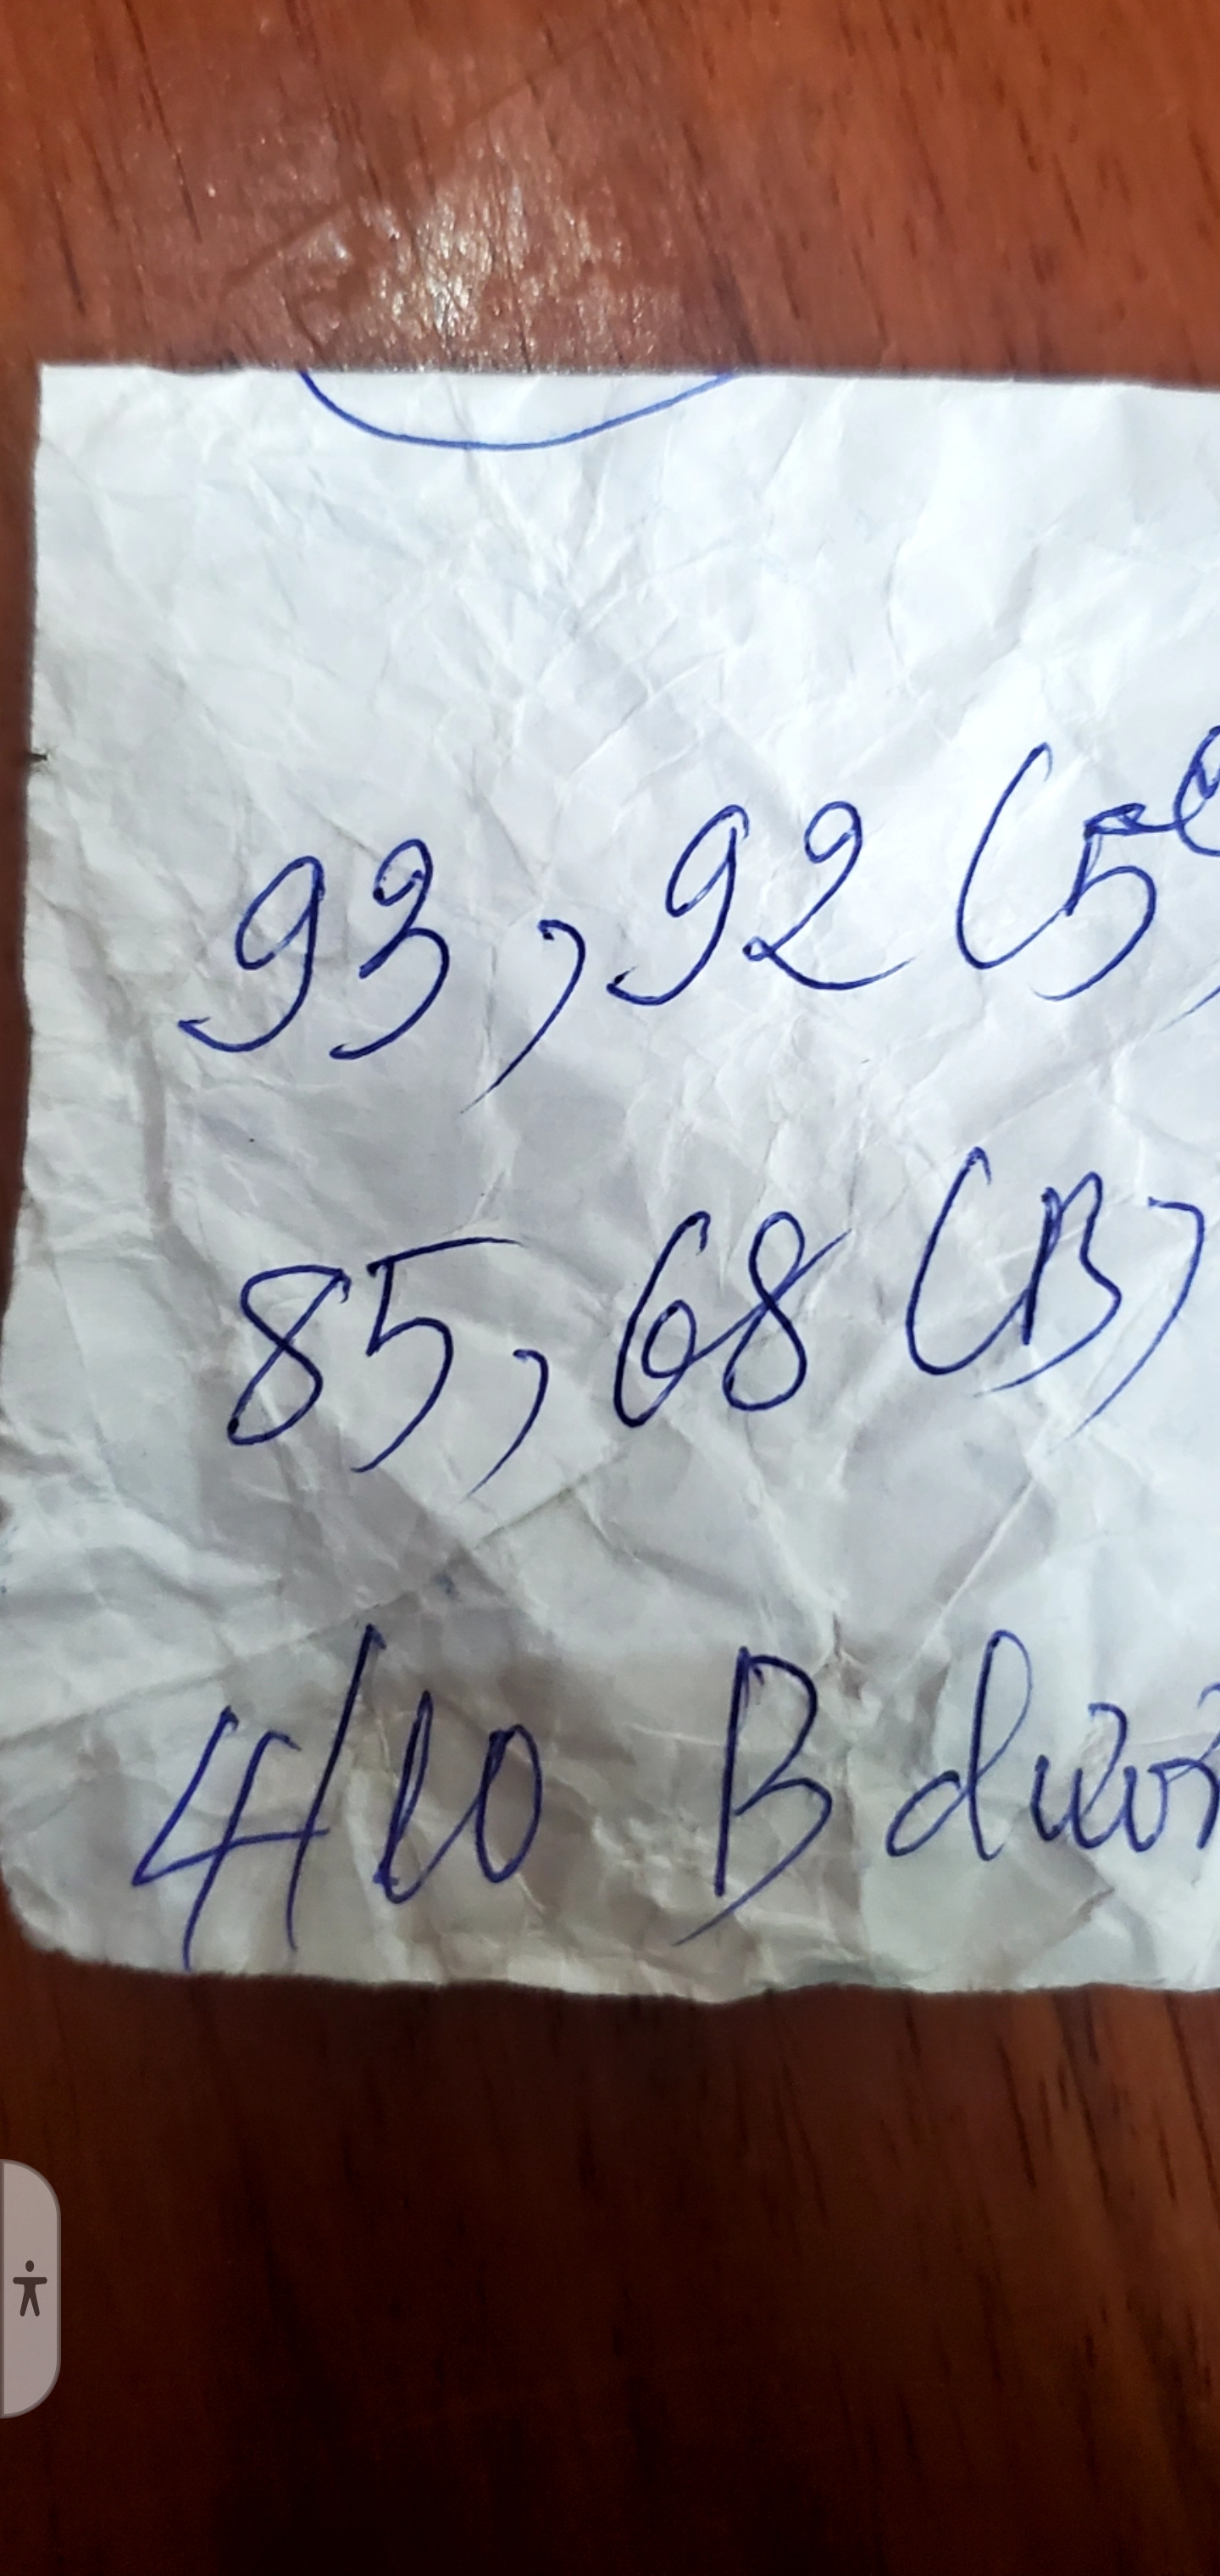 93, 92 (5
85, 68 (B)
4/10 B dưới